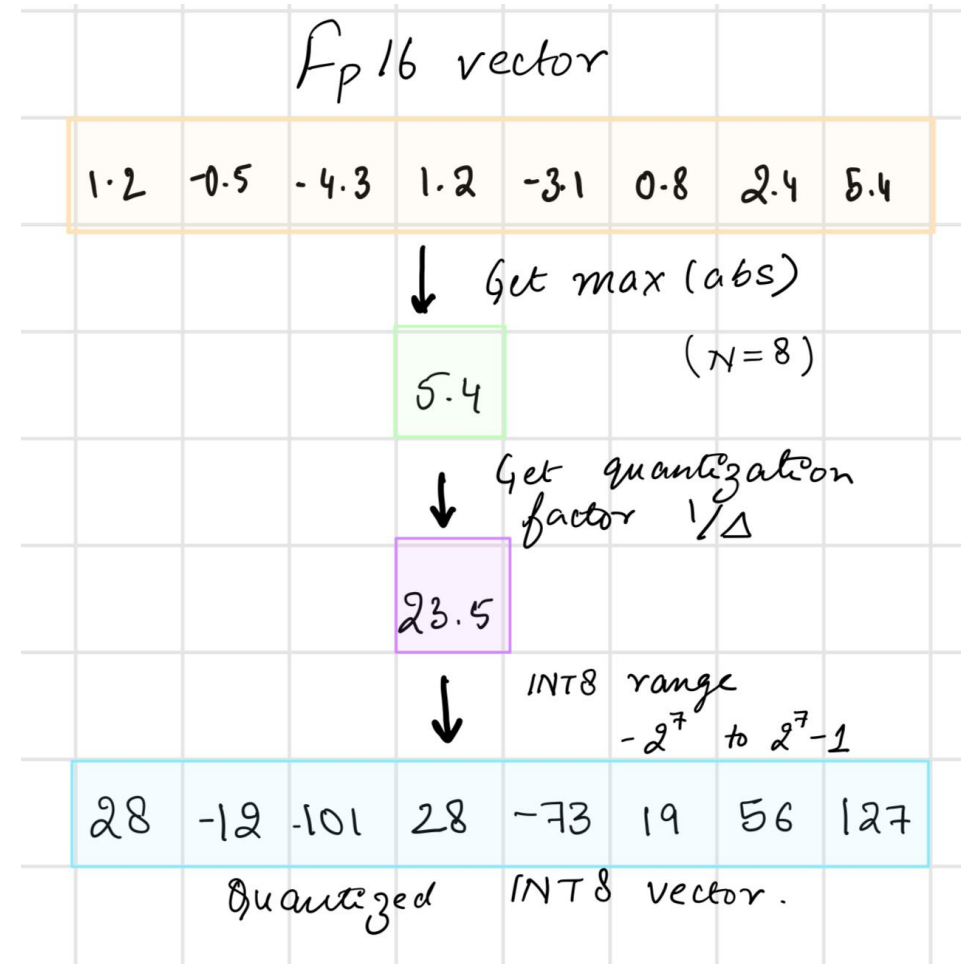 Fp16 vector
1.2 -0.5 -4.3 1.2 -3.1 0.8 2.4 5.4
Get max (abs)
(N=8)
5.4
Get quantization
factor 1/Δ
23.5
INT8 range
-2⁷ to 2⁷-1
28 -12 -101 28 -73 19 56 127
Quantized INT8 vector.